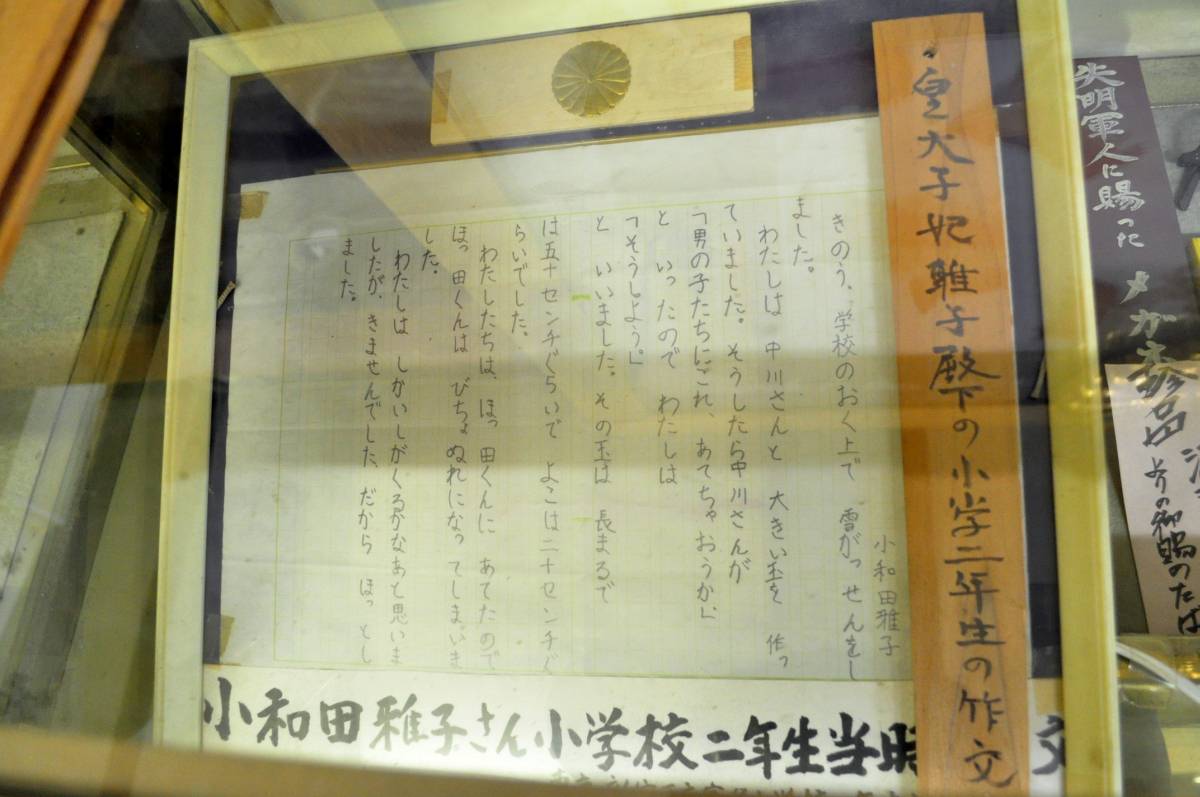 皇太子妃雅子殿下の小学二年生の作文
小和田雅子
きのう、学校のおく上で 雪がっせんをし
ました。
わたしは 中川さんと 大きい玉を 作っ
ていました。そうしたら中川さんが
「男の子たちにこれ、あてちゃおうか」
と いったので わたしは
「そうしよう」
と いいました。その玉は 長まるで
は五十センチぐらいで よこは二十センチぐ
らいでした。
わたしたちは、ほっ田くんに あてたので
ほっ田くんは びちょぬれになってしまいま
した。
わたしは しかいしがくるかなあと思いま
したが、きませんでした、だから ほっとし
ました。
小和田雅子さん小学校二年生当時
文
失明軍人に賜った
メガネ